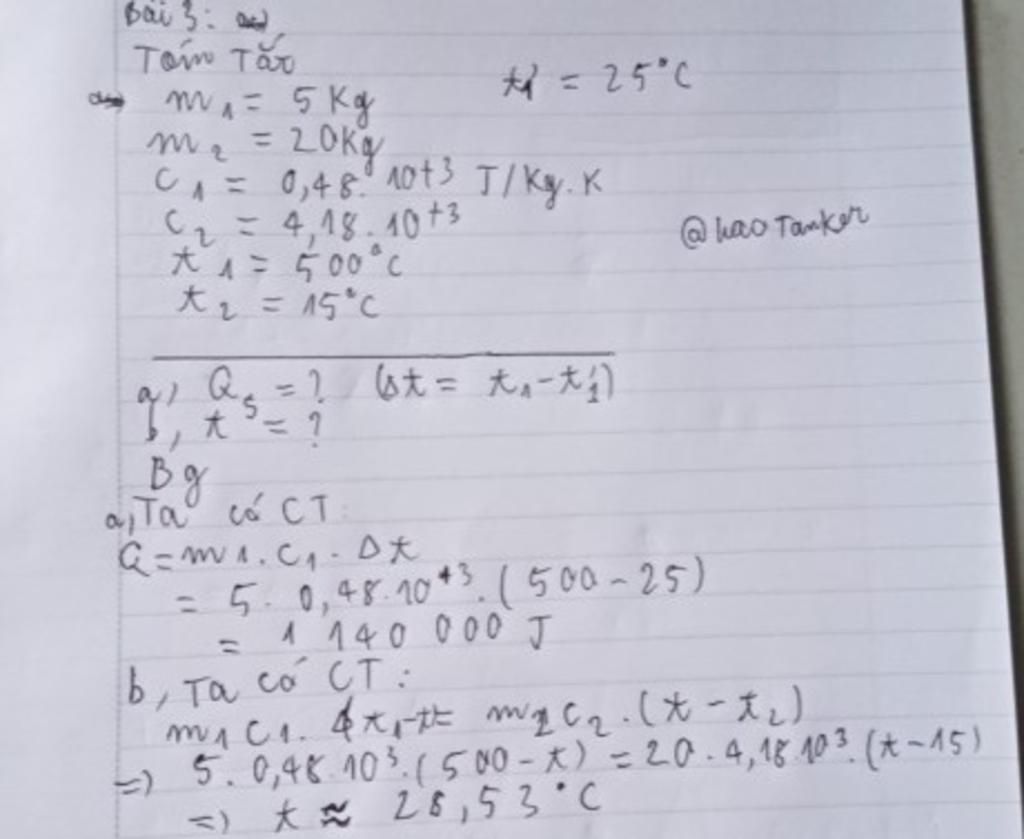 Bài 3:
Tóm Tắt
t1' = 25°C
m1 = 5 Kg
m2 = 20Kg
C1 = 0,48. 10+3 J/Kg.K
C2 = 4,18.10+3
@haoTanker
t1 = 500°C
t2 = 15°C
a, Q5 = ? (Δt = t1-t1')
b, t = ?
Bg
a, Ta có CT:
Q = m1.C1.Δt
= 5. 0,48.10+3.(500-25)
= 1 140 000 J
b, Ta có CT:
m1C1. (t1-t = m2C2.(t-t2)
=) 5. 0,48.10³.(500-t) = 20.4,18.10³.(t-15)
=) t ≈ 28,53°C